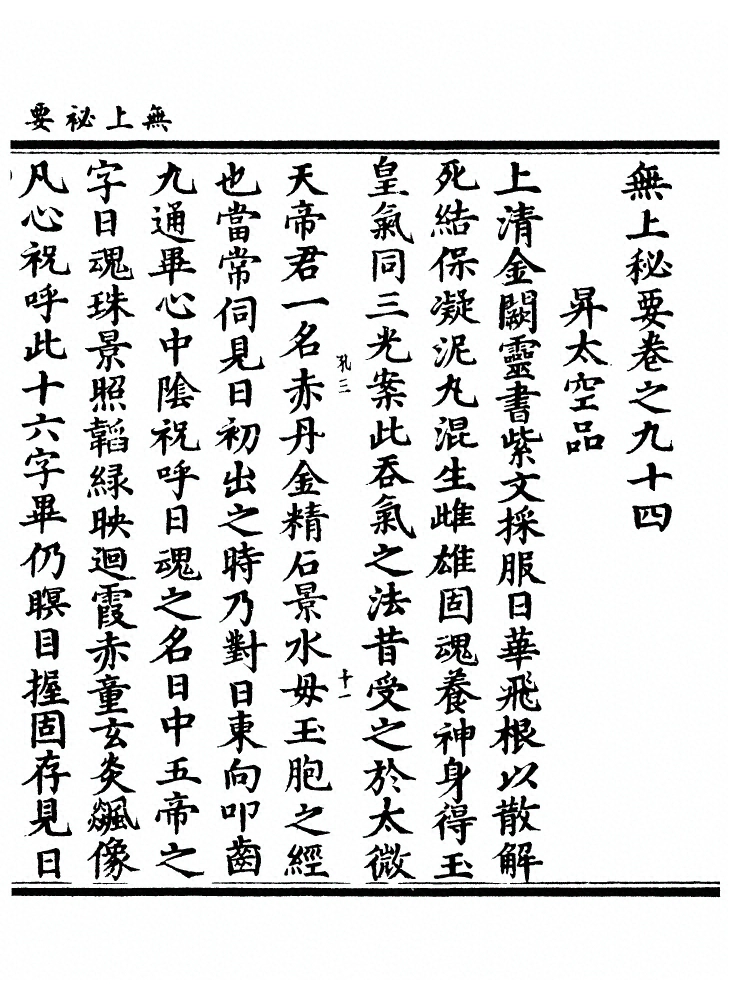 無上祕要
無上秘要卷之九十四
昇太空品
上清金闕靈書紫文採服日華飛根以散解
死結保凝泥丸混生雌雄固魂養神身得玉
皇氣同三光案此吞氣之法昔受之於太微
孔三
十一
天帝君一名赤丹金精石景水母玉胞之經
也當常伺見日初出之時乃對日東向叩齒
九通畢心中陰祝呼日魂之名日中五帝之
字日魂珠景照韜綠映迴霞赤童玄炎飈像
凡心祝呼此十六字畢仍瞑目握固存見日